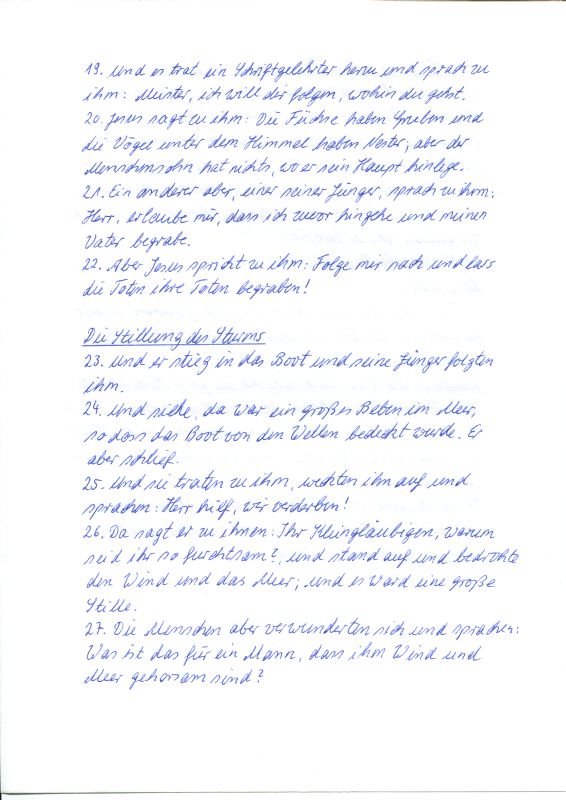 19. Und es trat ein Schriftgelehrter herzu und sprach zu
ihm: Meister, ich will dir folgen, wohin du gehst.
20. Jesus sagt zu ihm: Die Füchse haben Gruben und
die Vögel unter dem Himmel haben Nester; aber der
Menschensohn hat nichts, wo er sein Haupt hinlege.
21. Ein anderer aber, einer seiner Jünger, sprach zu ihm:
Herr, erlaube mir, dass ich zuvor hingehe und meinen
Vater begrabe.
22. Aber Jesus spricht zu ihm: Folge mir nach und lass
die Toten ihre Toten begraben!
Die Stillung des Sturms
23. Und er stieg in das Boot und seine Jünger folgten
ihm.
24. Und siehe, da war ein großes Beben im Meer,
so dass das Boot von den Wellen bedeckt wurde. Er
aber schlief.
25. Und sie traten zu ihm, weckten ihn auf und
sprachen: Herr hilf, wir verderben!
26. Da sagt er zu ihnen: Ihr Kleingläubigen, warum
seid ihr so furchtsam?, und stand auf und bedrohte
den Wind und das Meer; und es ward eine große
Stille.
27. Die Menschen aber verwunderten sich und sprachen:
Was ist das für ein Mann, dass ihm Wind und
Meer gehorsam sind?